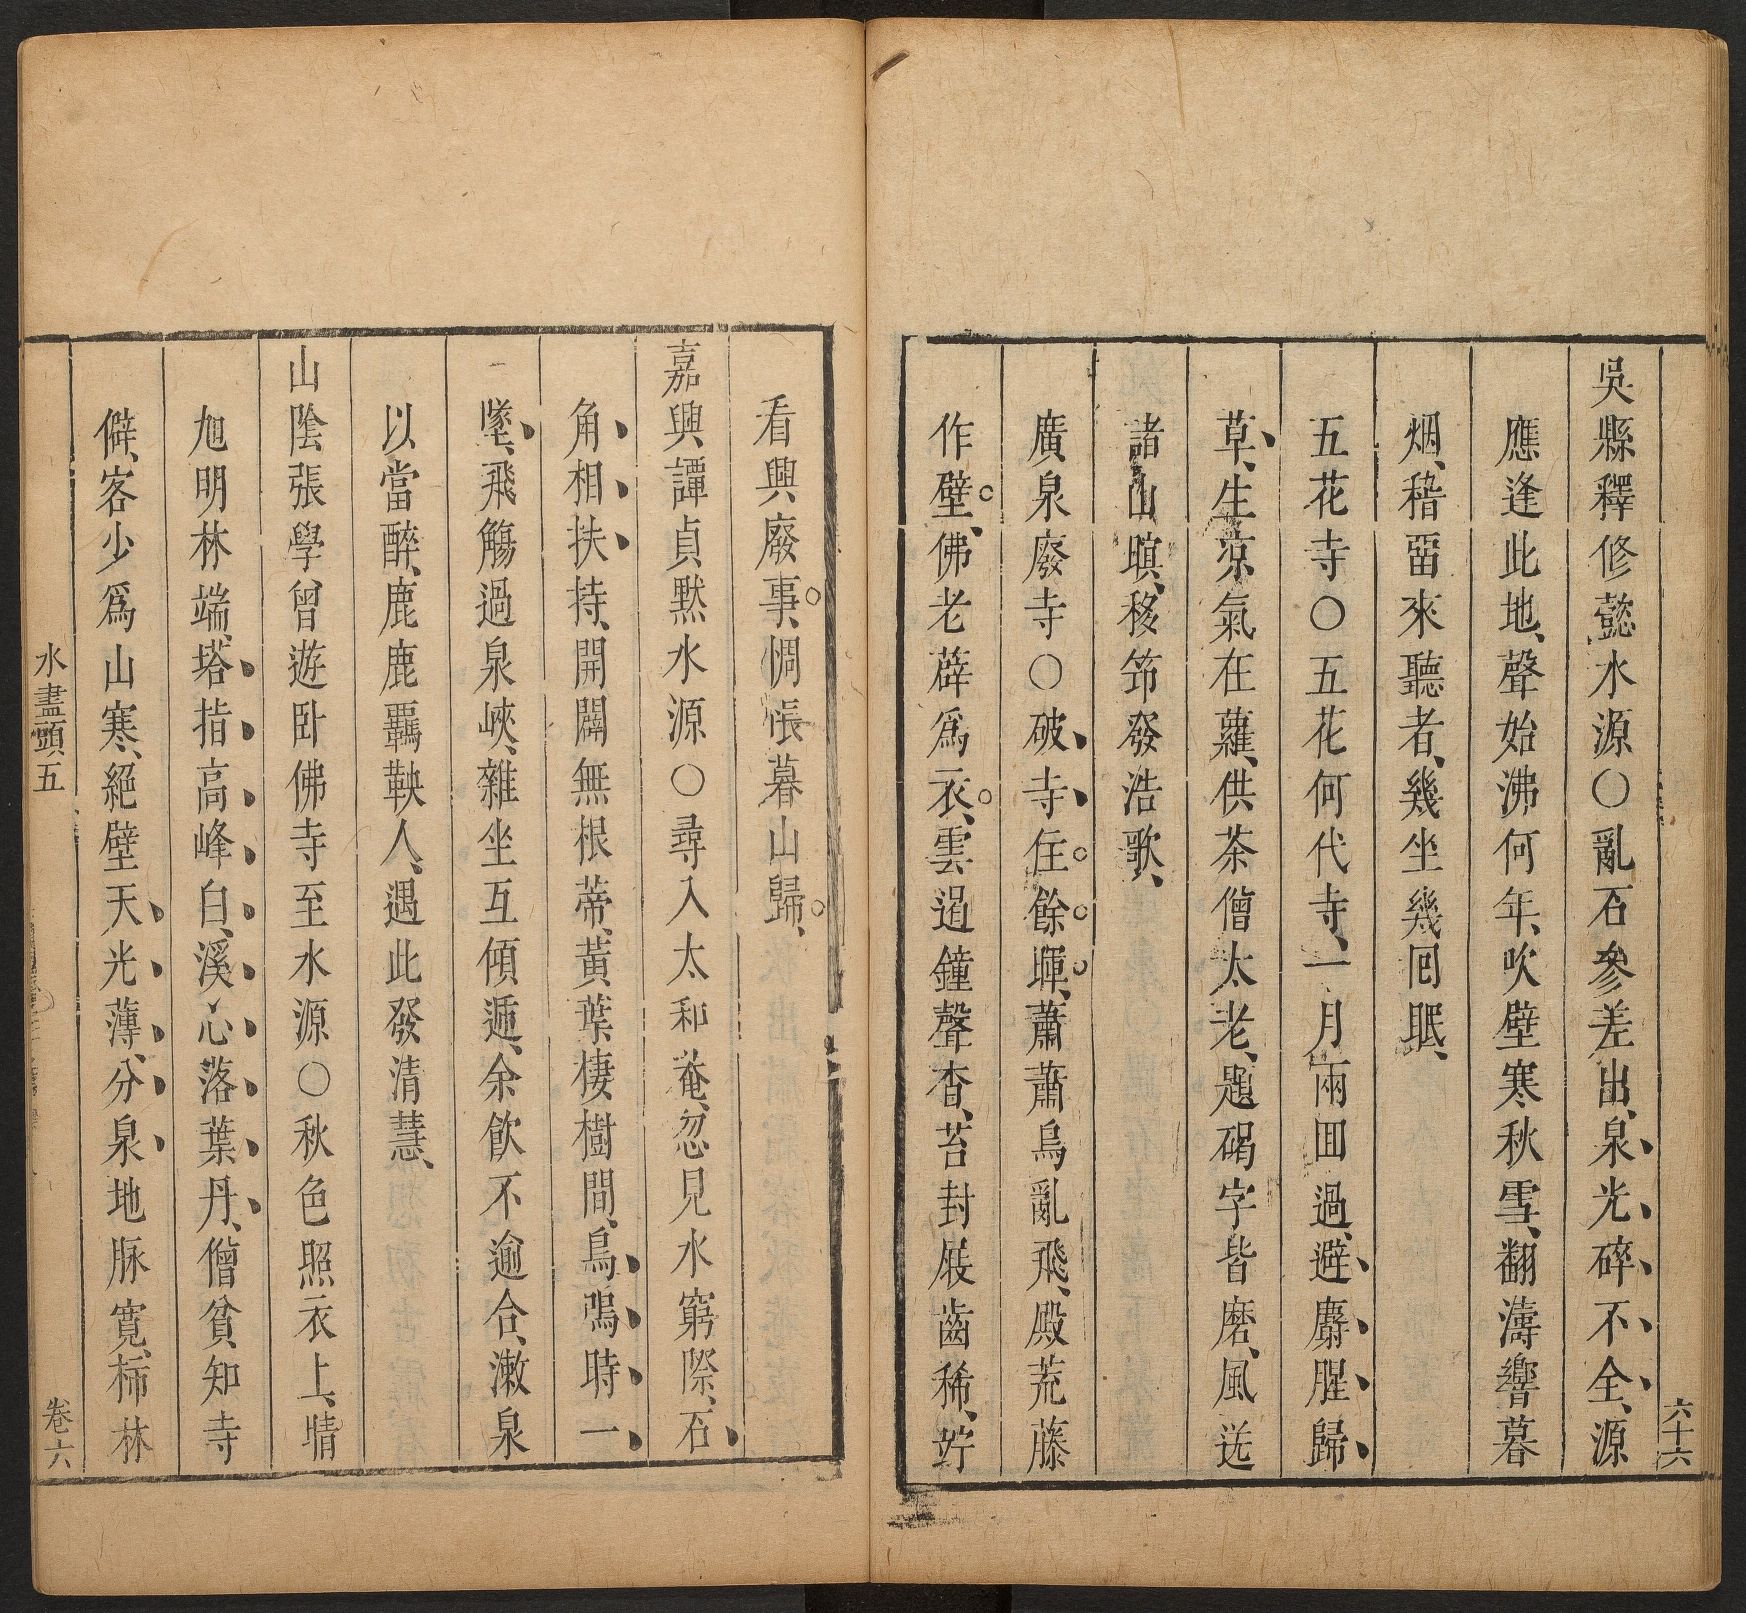 六十六
吳縣釋修懿水源○亂石參差出、泉光碎不全、源
應逢此地、聲始沸何年、吹壁寒秋雪、翻濤響暮
烟、稽畱來聽者、幾坐幾囘眠、
五花寺○五花何代寺、一月兩囬過、避麝腥歸
草、生凉氣在蘿、供茶僧太老、題碣字皆磨、風送
諸山暝、移筇發浩歌、
廣泉廢寺○破寺住餘暉、蕭蕭烏亂飛、殿荒藤
作壁、佛老薜爲衣、雲過鐘聲杳、苔封屐齒稀、竚
看興廢事、惆悵暮山歸、
嘉興譚貞默水源○尋入太和菴、忽見水窮際、石
角相扶持、開闢無根蒂、黃葉棲樹間、鳥鳴時一
墜、飛觴過泉峽、雜坐互傾遞、余飲不逾合、漱泉
以當醉、鹿鹿羈鞅人、遇此發清慧、
山陰張學曾遊臥佛寺至水源○秋色照衣上、晴
旭明林端、塔指高峰白、溪心落葉丹、僧貧知寺
僻、客少爲山寒、絕壁天光薄、分泉地脉寬、柿林
水盡頭、五
卷六